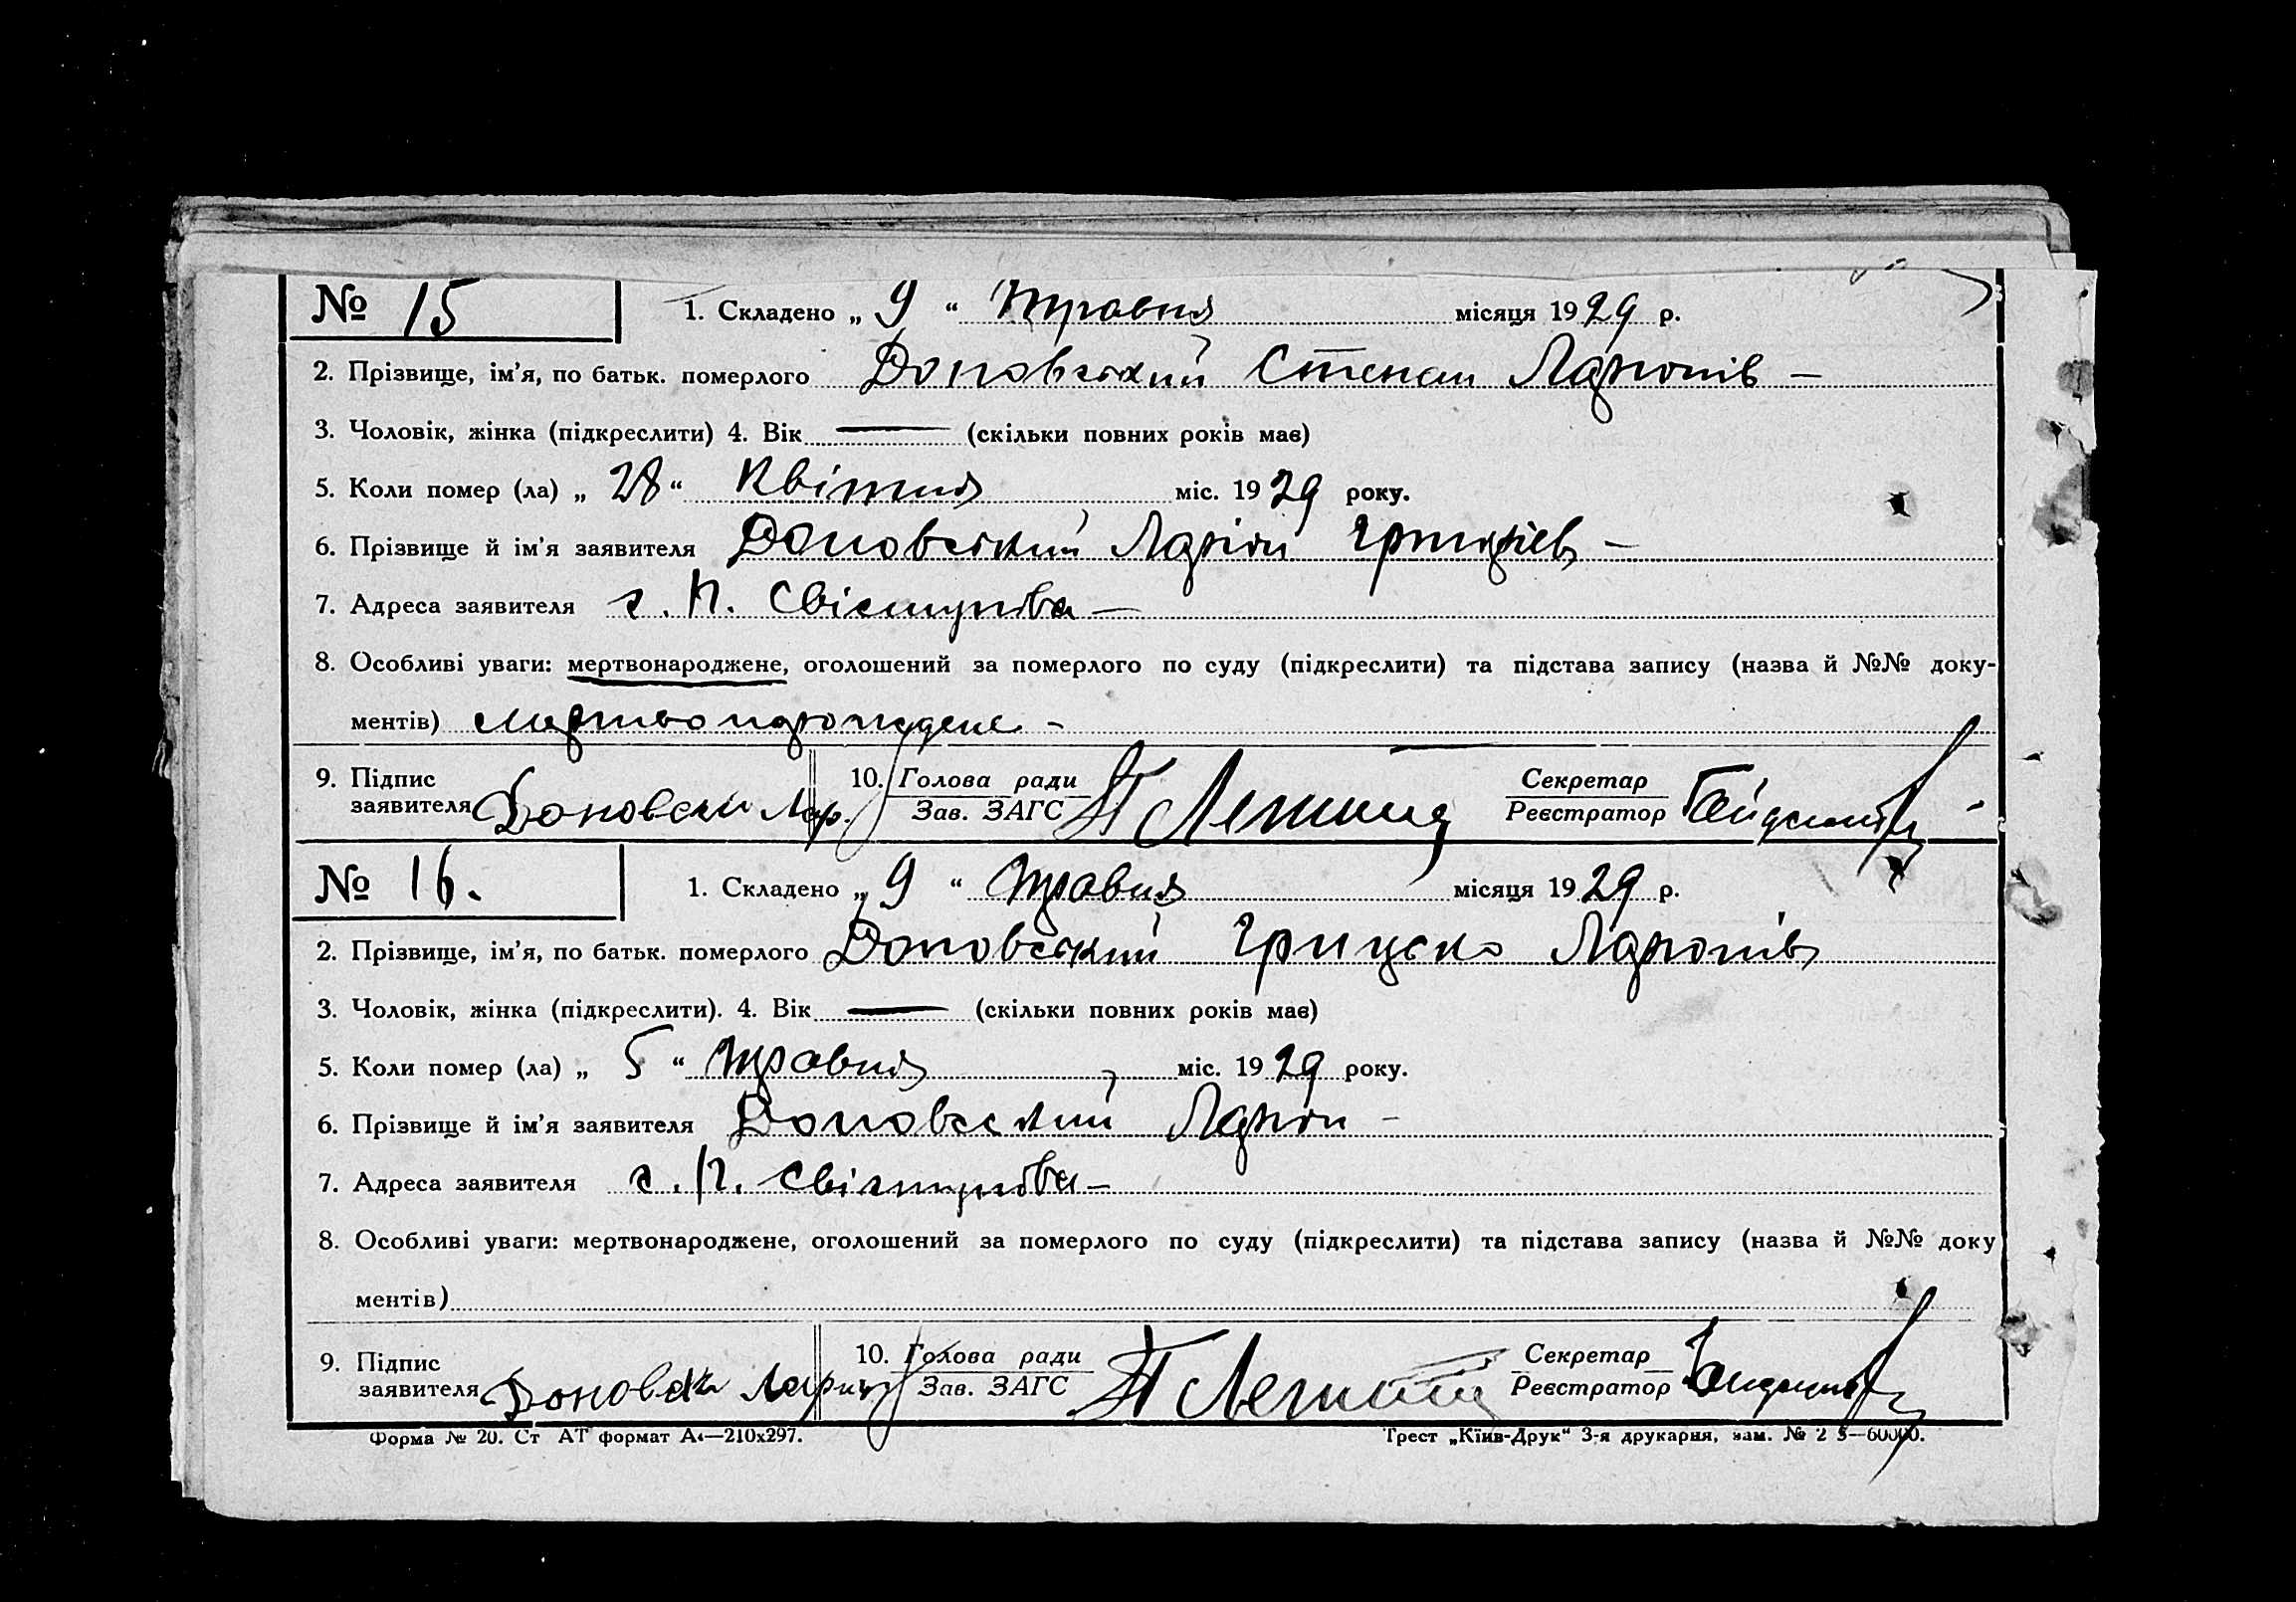 № 15 1. Складено „ 9 “ травня місяця 1929 р.
2. Прізвище, ім'я, по батьк. померлого Доновський Степан Ларионів –
3. Чоловік, жінка (підкреслити) 4. Вік — (скільки повних років має)
5. Коли помер (ла) „ 28 “ Квітня міс. 1929 року.
6. Прізвище й ім'я заявителя Доновський Ларіон –
7. Адреса заявителя х. К. Свістунова –
8. Особливі уваги: мертвонароджене, оголошений за померлого по суду (підкреслити) та підстава запису (назва й №№ доку-
ментів) мертвонарождене –
9. Підпис заявителя Доновски Лар. 10. Голова ради Зав. ЗАГС Секретар Реєстратор
№ 16. 1. Складено „ 9 “ травня місяця 1929 р.
2. Прізвище, ім'я, по батьк. померлого Доновський Грицько Ларионів
3. Чоловік, жінка (підкреслити). 4. Вік — (скільки повних років має)
5. Коли помер (ла) „ 5 “ травня міс. 1929 року.
6. Прізвище й ім'я заявителя Доновський Ларіон –
7. Адреса заявителя х. К. Свістунова –
8. Особливі уваги: мертвонароджене, оголошений за померлого по суду (підкреслити) та підстава запису (назва й №№ доку
ментів)
9. Підпис заявителя Доновски 10. Голова ради Зав. ЗАГС Секретар Реєстратор
Форма № 20. Ст АТ формат А4—210х297. Трест „Київ-Друк“ 3-я друкарня, зам. №